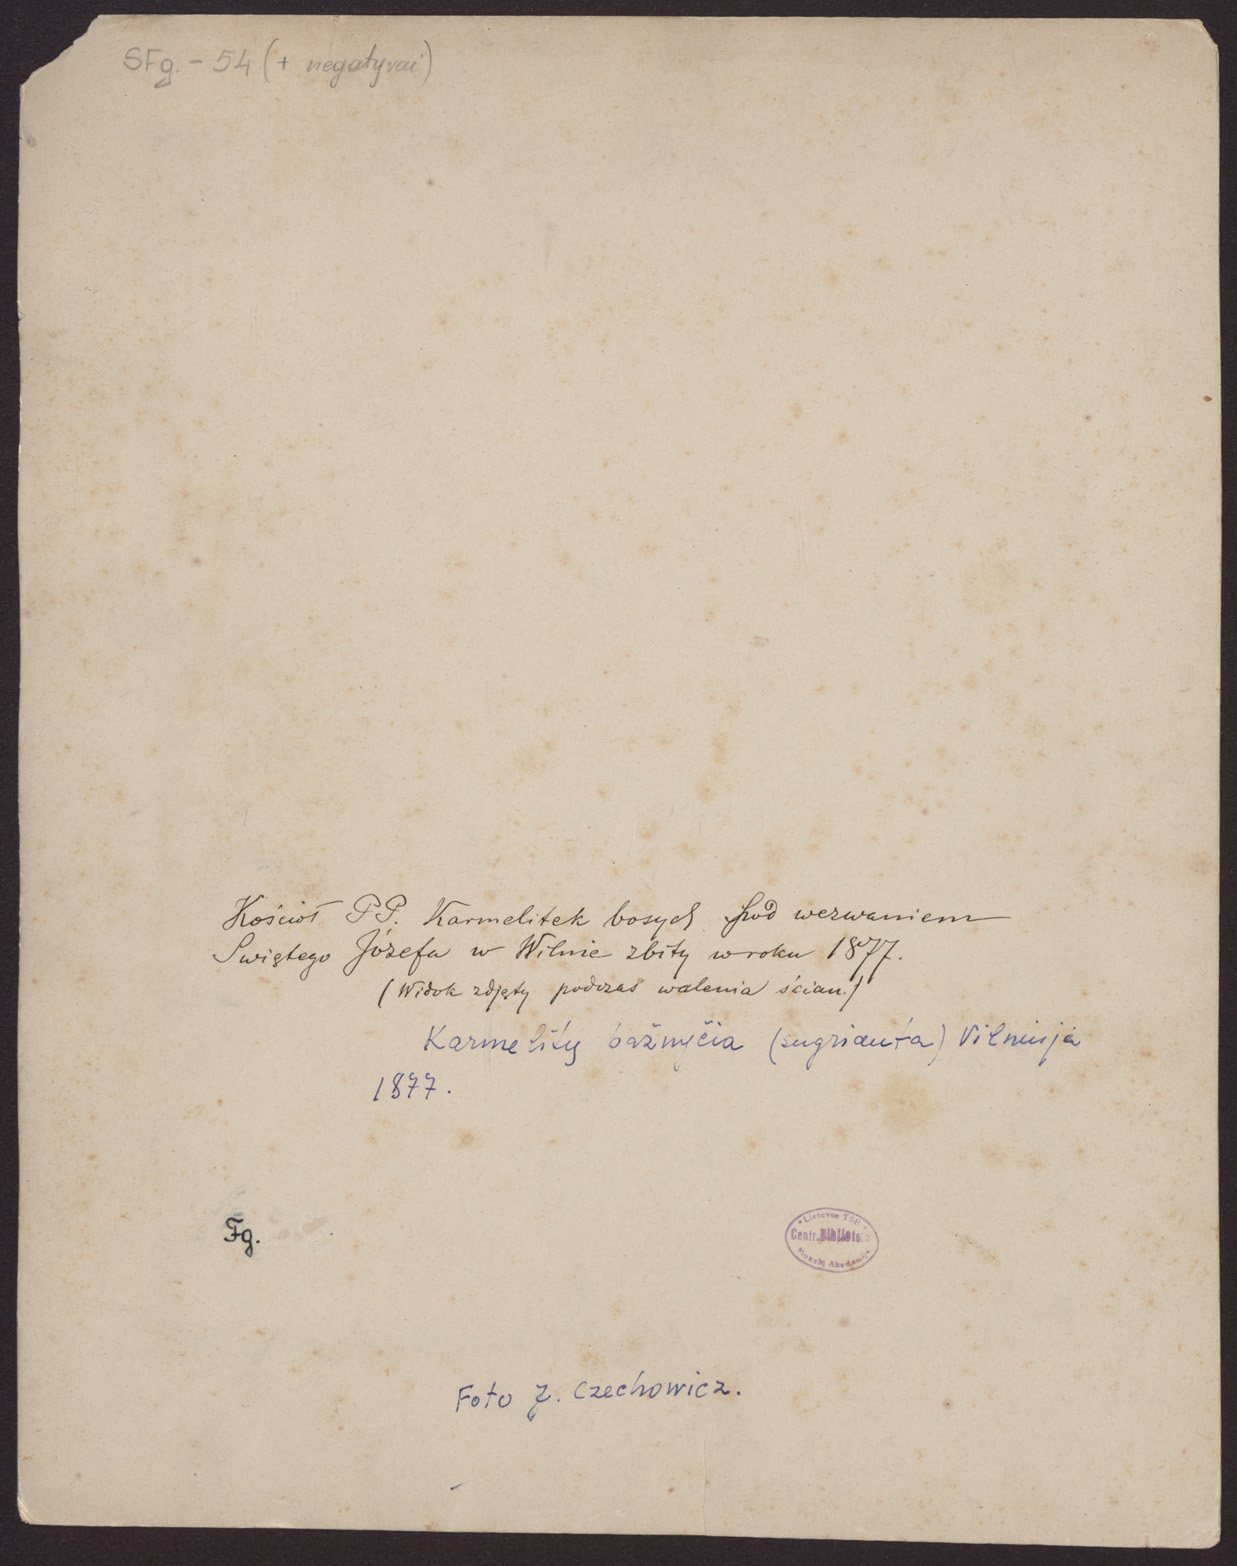 SFg. - 54 (+ negatyvai)
Kościoł PP. Karmelitek bosych pod wezwaniem
Swiętego Józefa w Wilnie zbity w roku 1877.
(Widok zdjęty podczas walenia ścian.)
Karmelitų bažnyčia (sugriauta) Vilniuje
1877.
Fg.
Lietuvos TSR
Centr. Bibliotek
Mokslų Akademija
Foto J. Czechowicz.